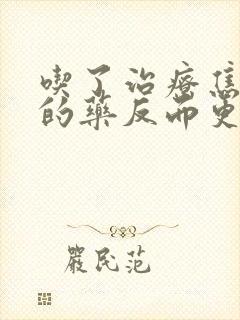 喫了治療焦
的藥反而更
嚴民范